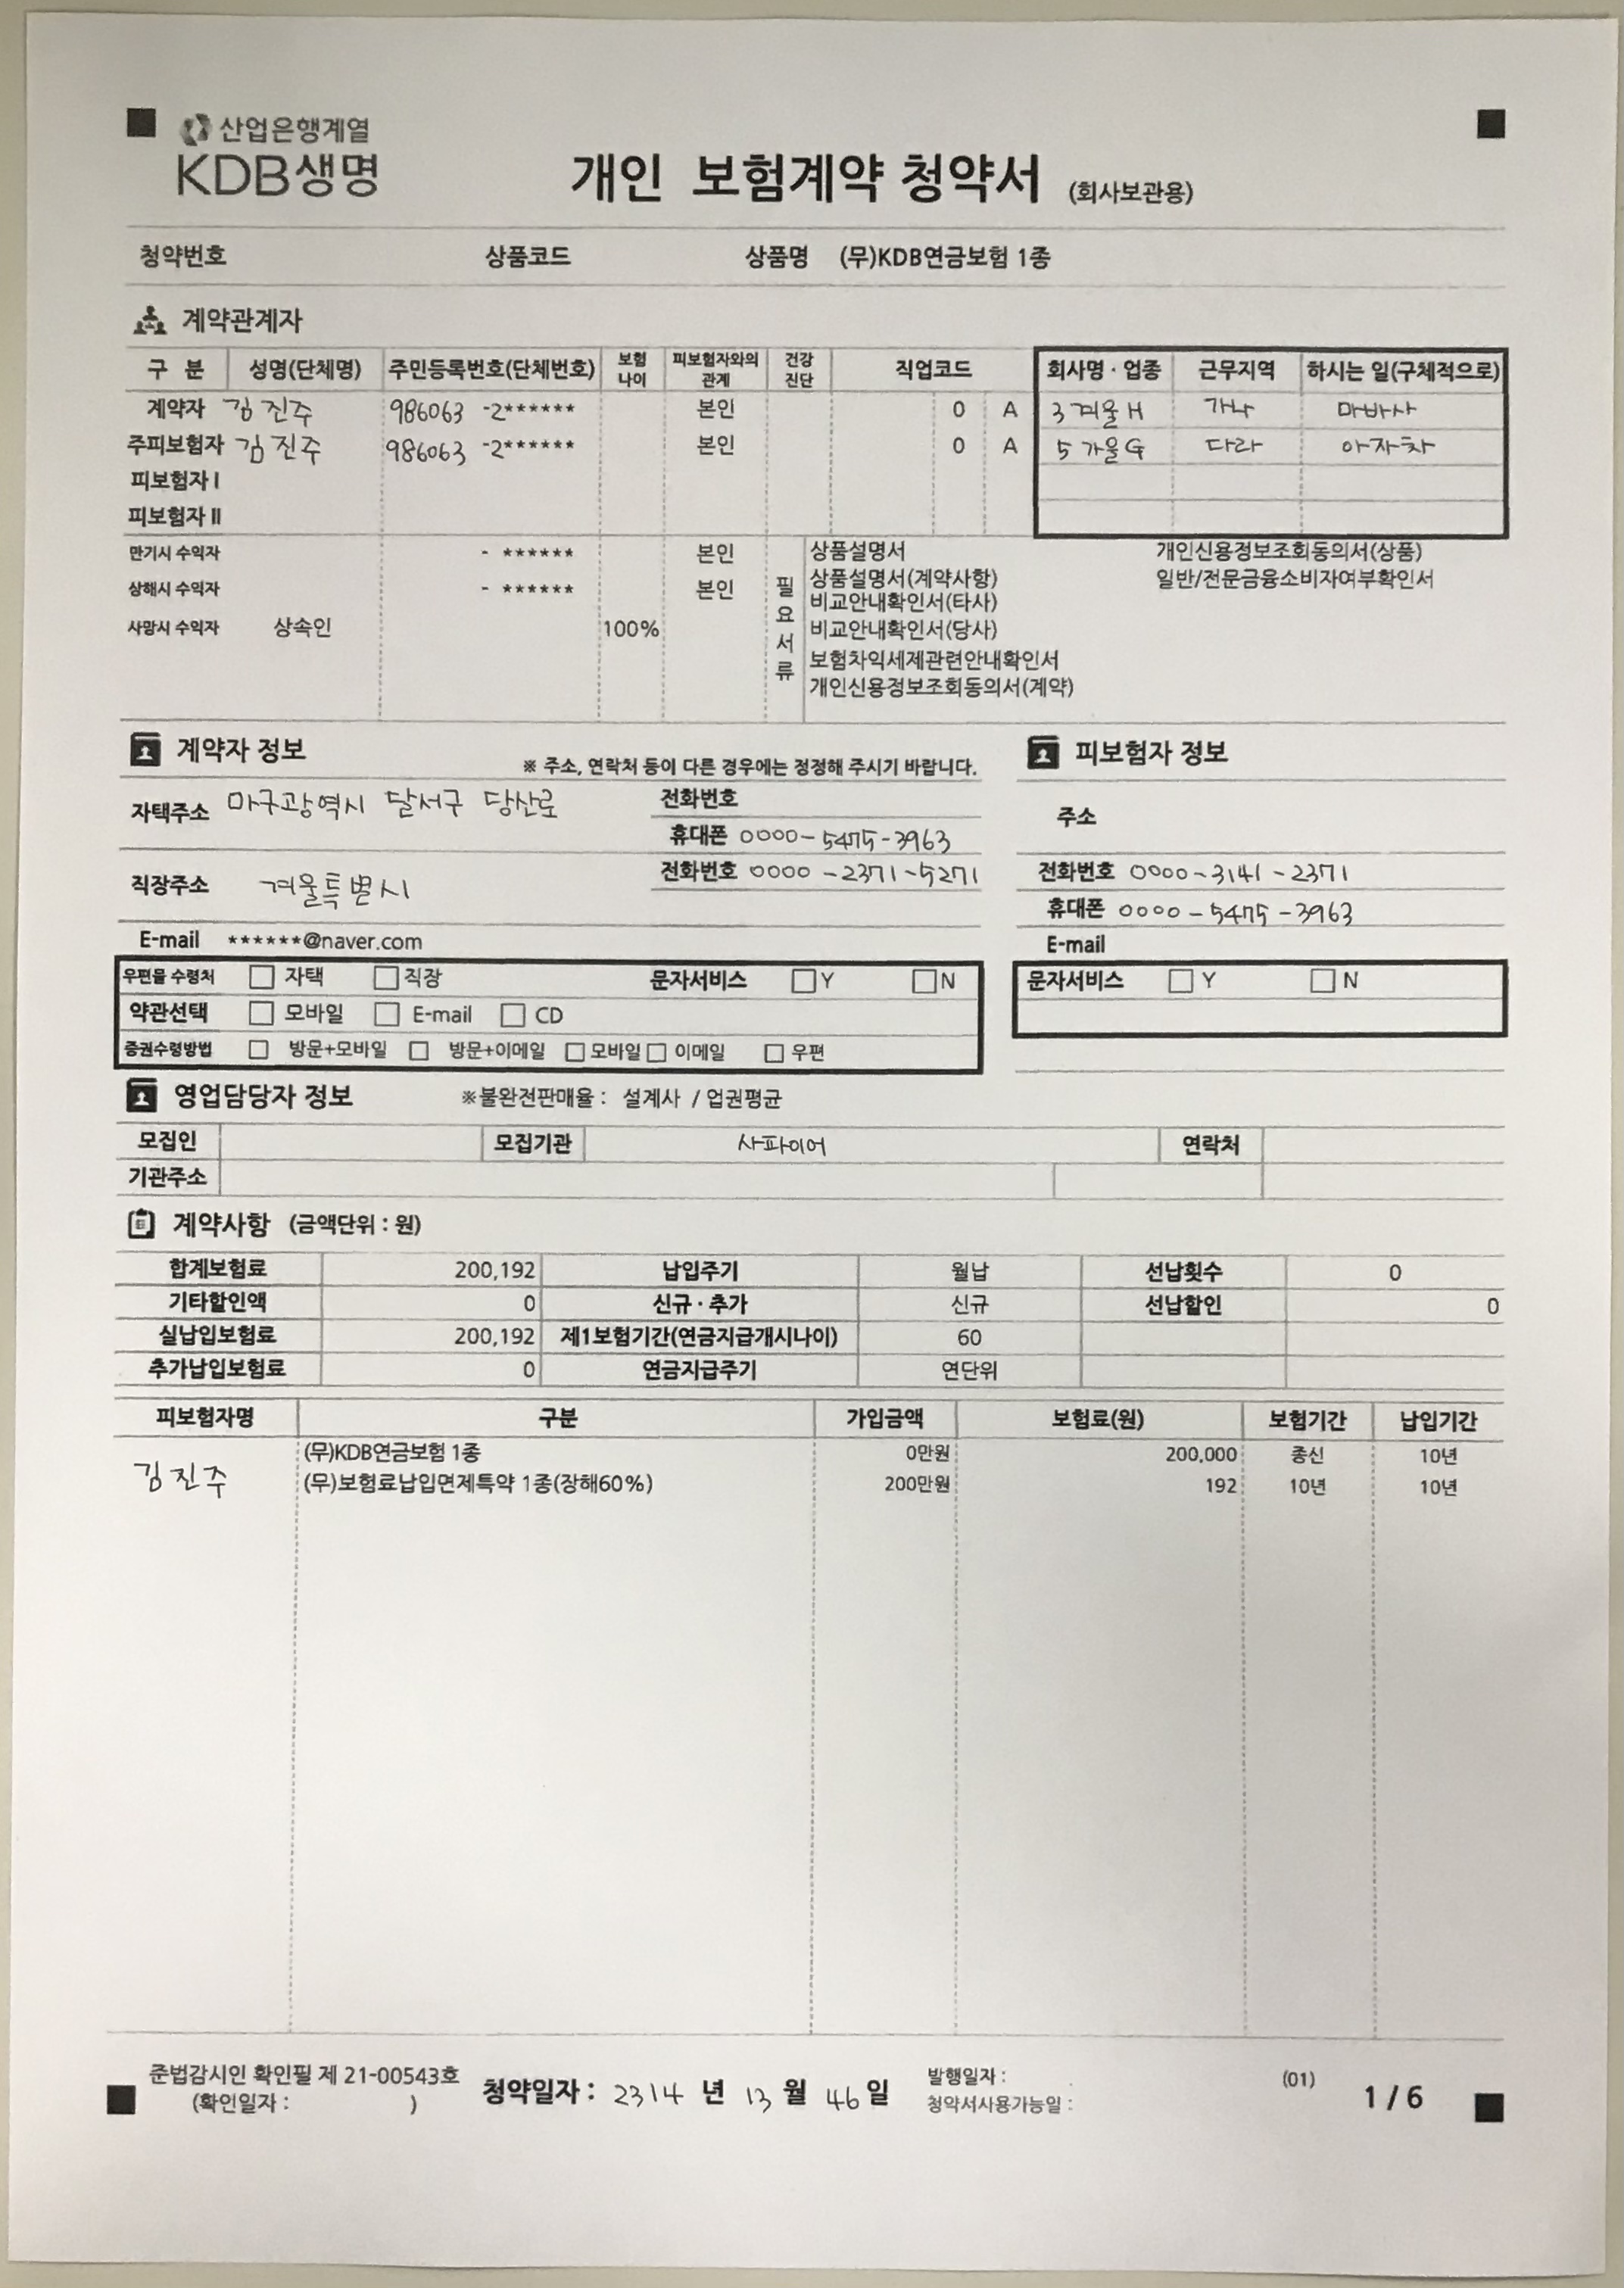 산업은행계열
KDB생명
개인 보험계약 청약서 (회사보관용)
청약번호 상품코드 상품명 (무)KDB연금보험 1종
계약관계자
구 분 성명(단체명) 주민등록번호(단체번호) 보험나이 피보험자와의 관계 건강진단 직업코드 회사명·업종 근무지역 하시는 일(구체적으로)
계약자 김진주 986063 -2****** 본인 0 A 3겨울H 가나 마바사
주피보험자 김진주 986063 -2****** 본인 0 A 5가을G 다라 아자차
피보험자 I
피보험자 II
만기시 수익자 - ****** 본인
상해시 수익자 - ****** 본인
사망시 수익자 상속인 100%
필요서류
상품설명서 개인신용정보조회동의서(상품)
상품설명서(계약사항) 일반/전문금융소비자여부확인서
비교안내확인서(타사)
비교안내확인서(당사)
보험차익세제관련안내확인서
개인신용정보조회동의서(계약)
계약자 정보 ※ 주소, 연락처 등이 다른 경우에는 정정해 주시기 바랍니다.
자택주소 마구광역시 달서구 당산로 전화번호
휴대폰 0000-5475-3963
직장주소 겨울특별시 전화번호 0000-2371-5271
E-mail ******@naver.com
우편물 수령처 자택 직장 문자서비스 Y N
약관선택 모바일 E-mail CD
증권수령방법 방문+모바일 방문+이메일 모바일 이메일 우편
피보험자 정보
주소
전화번호 0000-3141-2371
휴대폰 0000-5475-3963
E-mail
문자서비스 Y N
영업담당자 정보 ※불완전판매율 : 설계사 / 업권평균
모집인 모집기관 사파이어 연락처
기관주소
계약사항 (금액단위 : 원)
합계보험료 200,192 납입주기 월납 선납횟수 0
기타할인액 0 신규·추가 신규 선납할인 0
실납입보험료 200,192 제1보험기간(연금지급개시나이) 60
추가납입보험료 0 연금지급주기 연단위
피보험자명 구분 가입금액 보험료(원) 보험기간 납입기간
김진주 (무)KDB연금보험 1종 0만원 200,000 종신 10년
(무)보험료납입면제특약 1종(장해60%) 200만원 192 10년 10년
준법감시인 확인필 제 21-00543호
(확인일자 : )
청약일자 : 2314 년 13 월 46 일
발행일자 :
청약서사용가능일 :
(01)
1 / 6